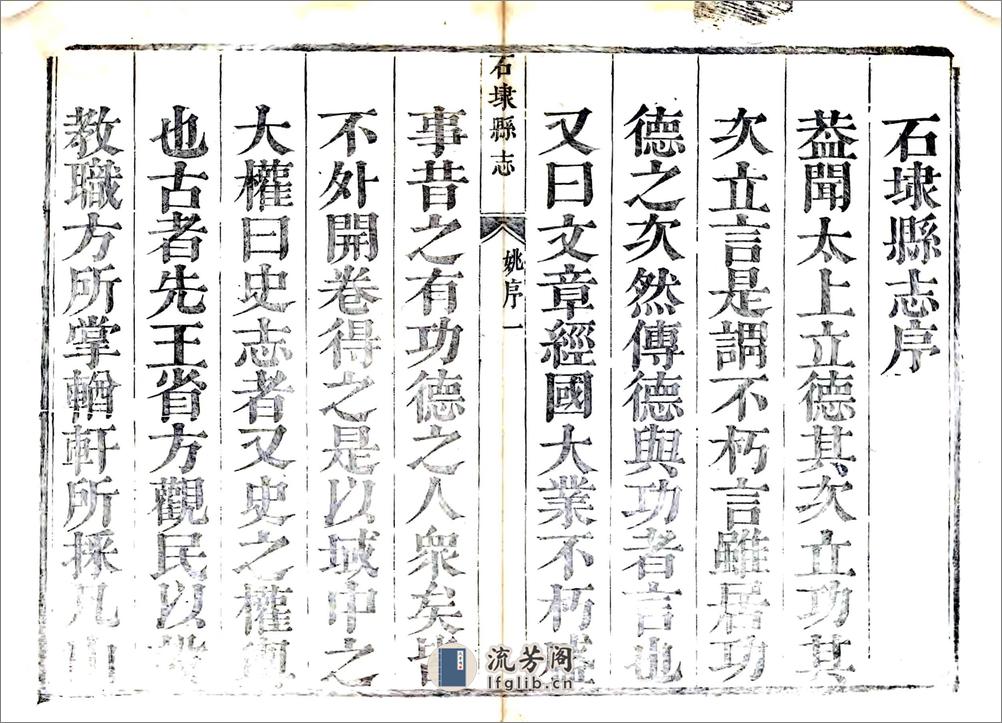 石埭縣志序
葢聞太上立德其次立功其
次立言是謂不朽言雖居功
德之次然傳德與功者言也
又曰文章經國大業不朽盛
石埭縣志
姚序一
事昔之有功德之人衆矣皆
不外開卷得之是以域中之
大權曰史志者又史之權輿
也古者先王省方觀民以設
教職方所掌輶軒所採凡山
流芳阁
lfglib.cn